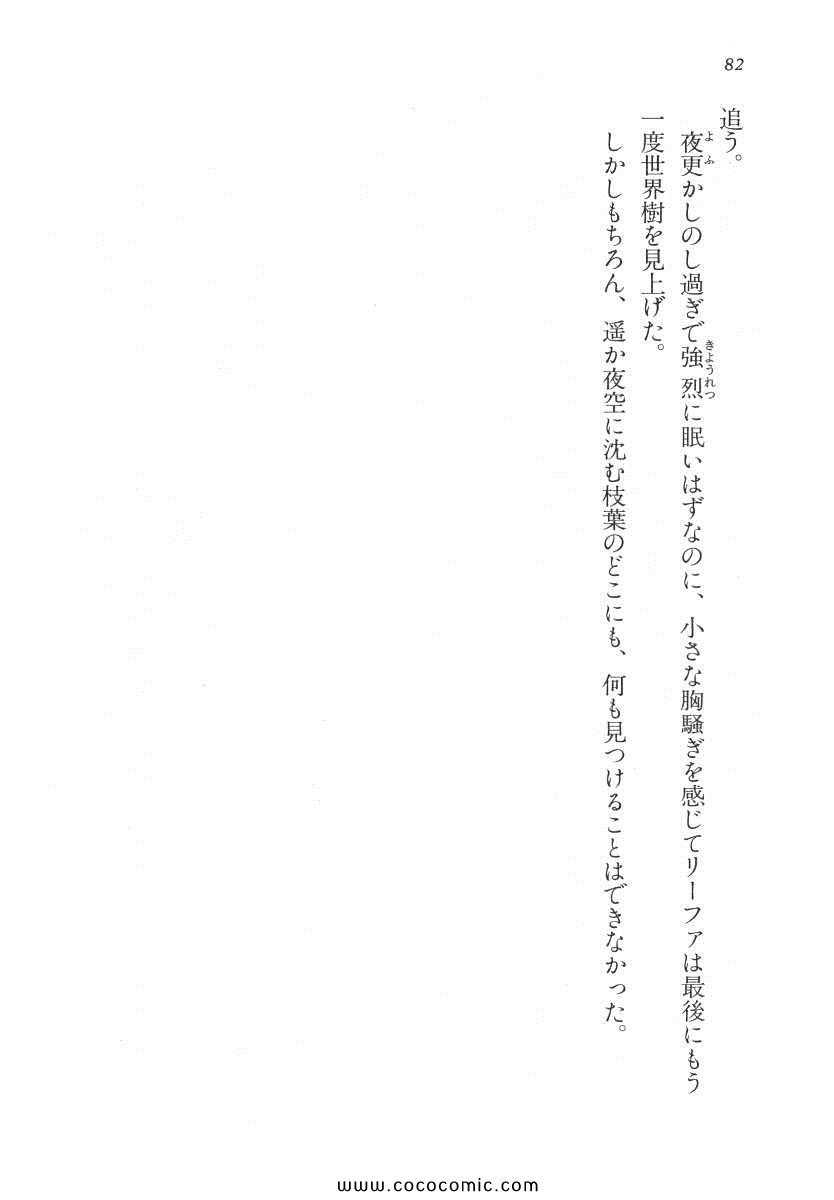 82
追う。
夜更かしのし過ぎで強烈に眠いはずなのに、小さな胸騒ぎを感じてリーファは最後にもう
一度世界樹を見上げた。
しかしもちろん、遥か夜空に沈む枝葉のどこにも、何も見つけることはできなかった。
よふ
きようれつ
www.cococomic.com